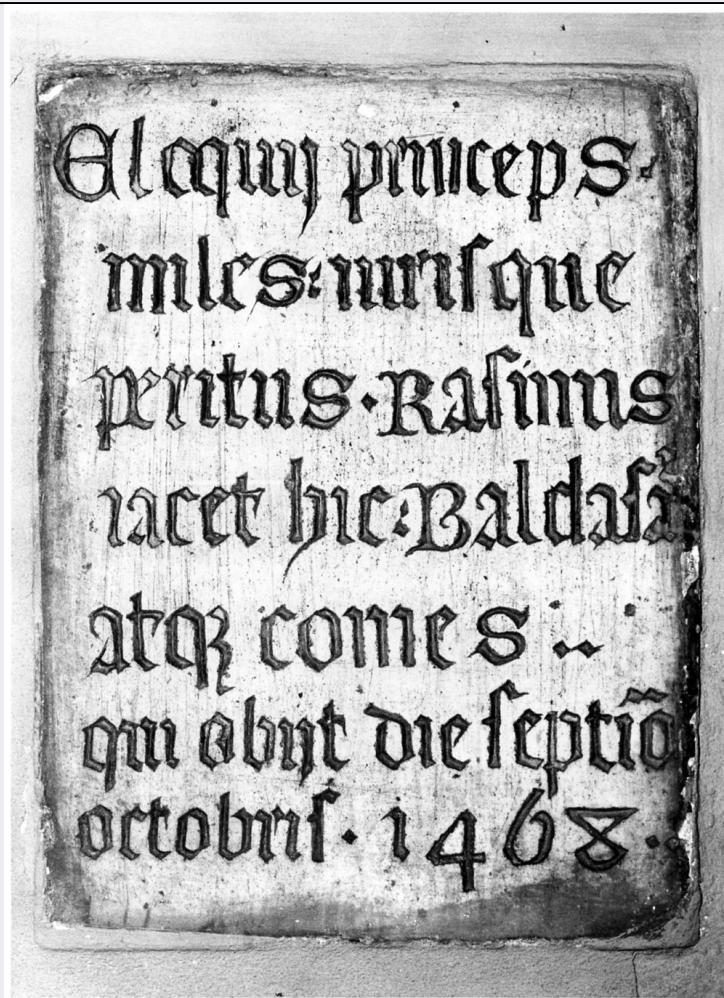 Eloquij princeps·
miles: iurisque
peritus · Rasinus
iacet hic: Baldasã
atqꝫ comes ··
qui obijt die septiõ
octobris · 1468 ·